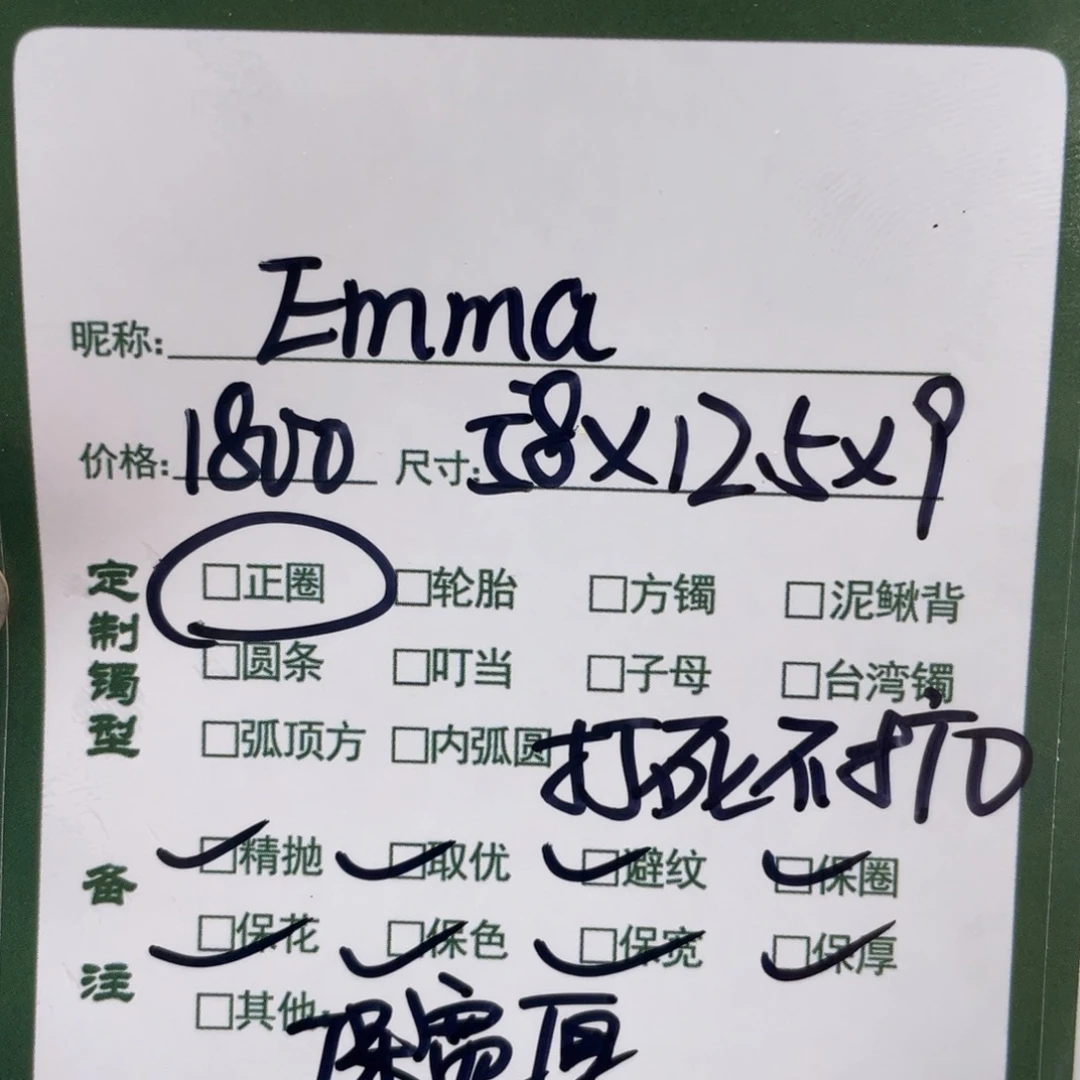 昵称: Emma
价格: 1800 尺寸: 58×12.5×9
定制镯型
□正圈 □轮胎 □方镯 □泥鳅背
□圆条 □叮当 □子母 □台湾镯
□弧顶方 □内弧圆 打死不扩口
备注
□精抛 □取优 □避纹 □保圈
□保花 □保色 □保宽 □保厚
□其他: 保